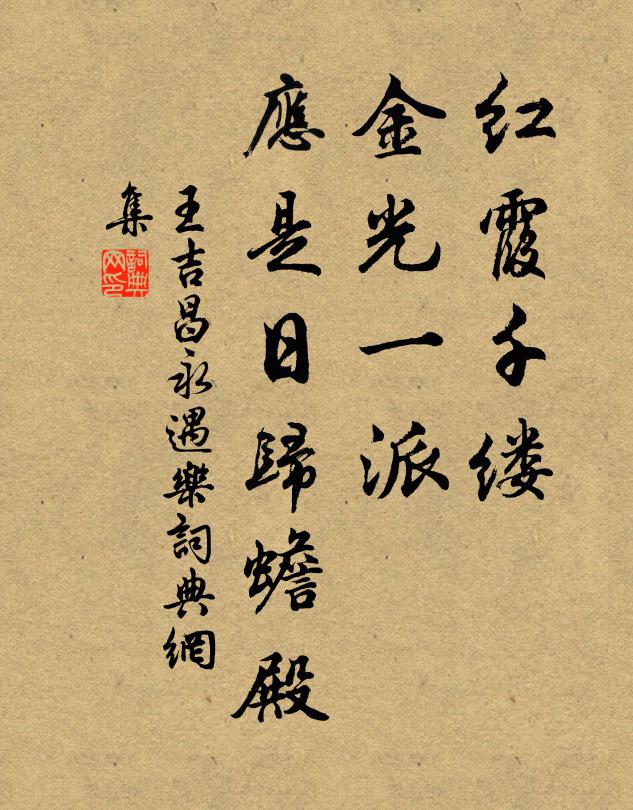 红霞千缕
金光一派
應是日歸蟾殿
王吉昌永遇樂詞典網
集
詞典
网印